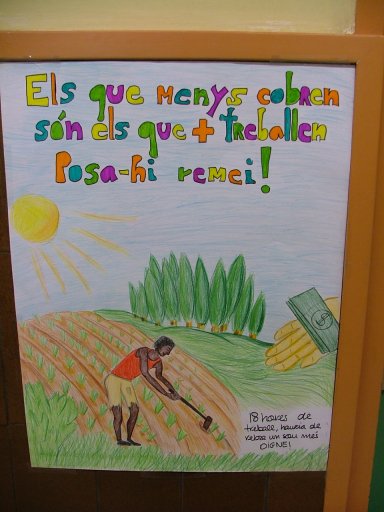 Els que menys cobren
són els que + treballen
Posa-hi remei!
$
18 hores de
treball, hauria de
rebre un sou més
DIGNE!